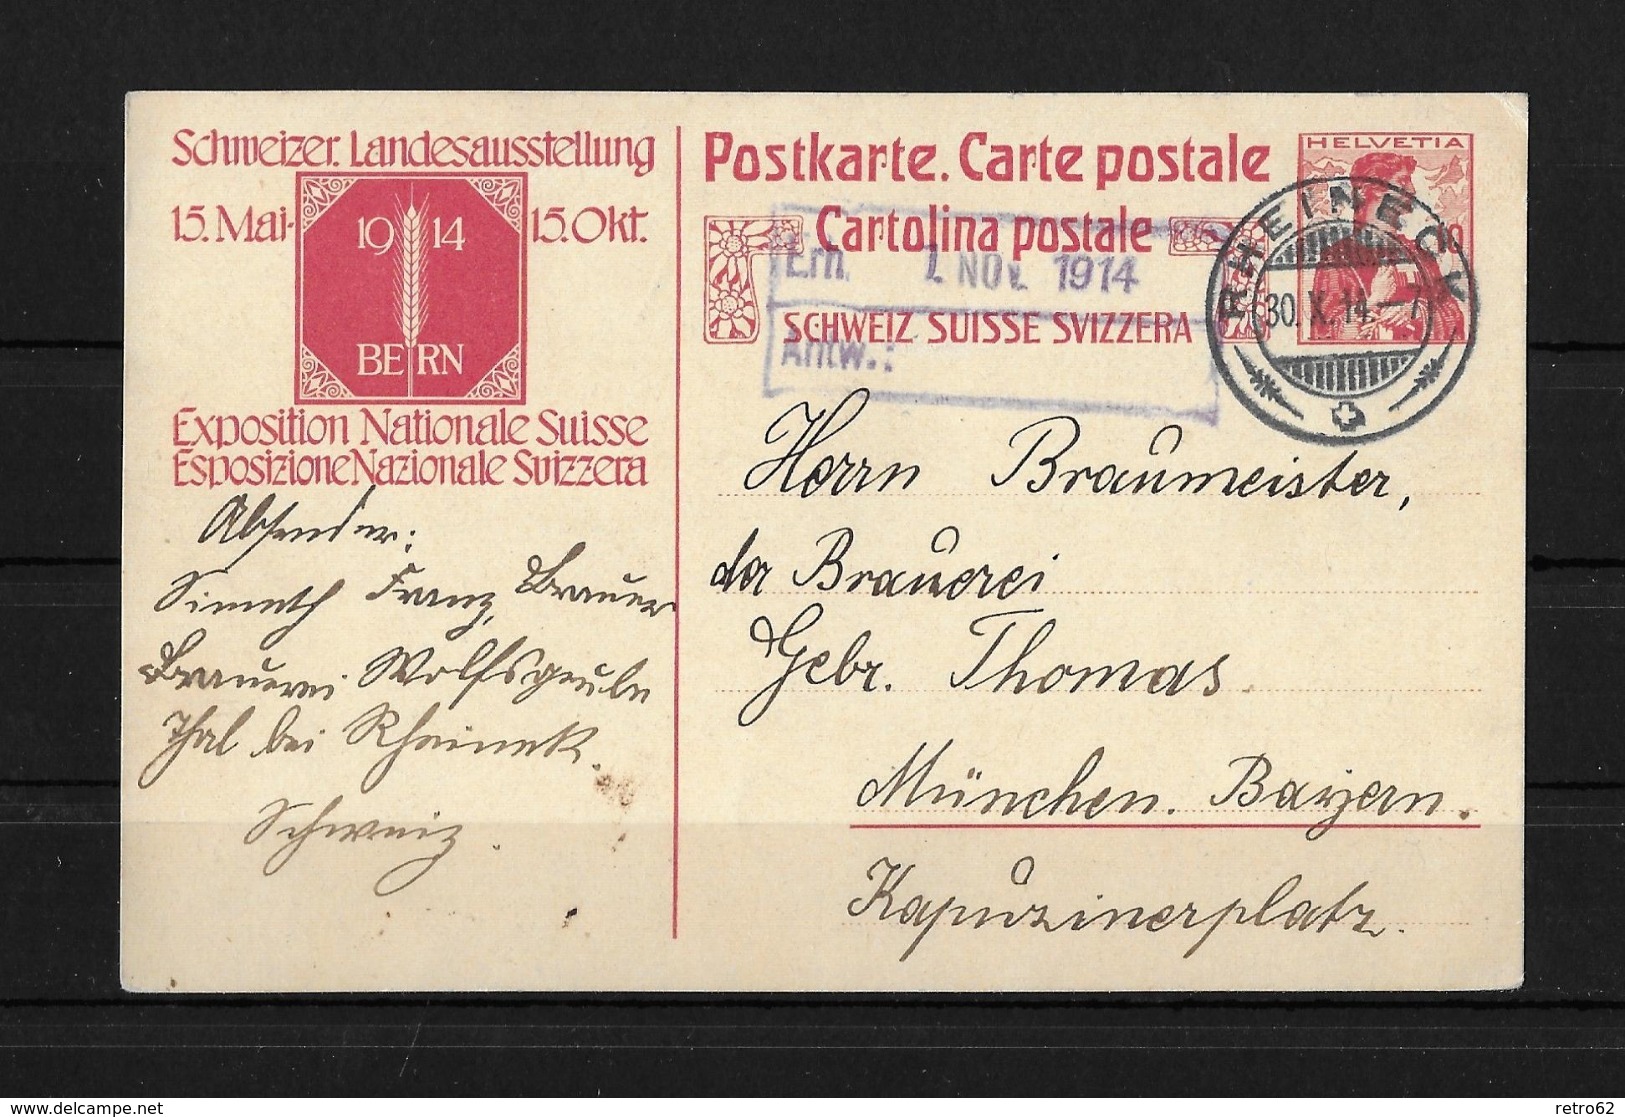 Schweizer. Landesausstellung
15. Mai - 15. Okt.
19 14
BERN
Exposition Nationale Suisse
Esposizione Nazionale Svizzera
Absender:
Simeth Franz, Brauer
Brauerei Wolfsgrube
Thal bei Rheineck.
Schweiz.
Postkarte. Carte postale
Cartolina postale
SCHWEIZ SUISSE SVIZZERA
HELVETIA
10
RHEINECK
30. X. 14. – 7
NOV. 1914
Antw.:
Herrn Braumeister,
der Brauerei
Gebr. Thomas
München. Bayern.
Kapuzinerplatz.
www.delcampe.net
retro62